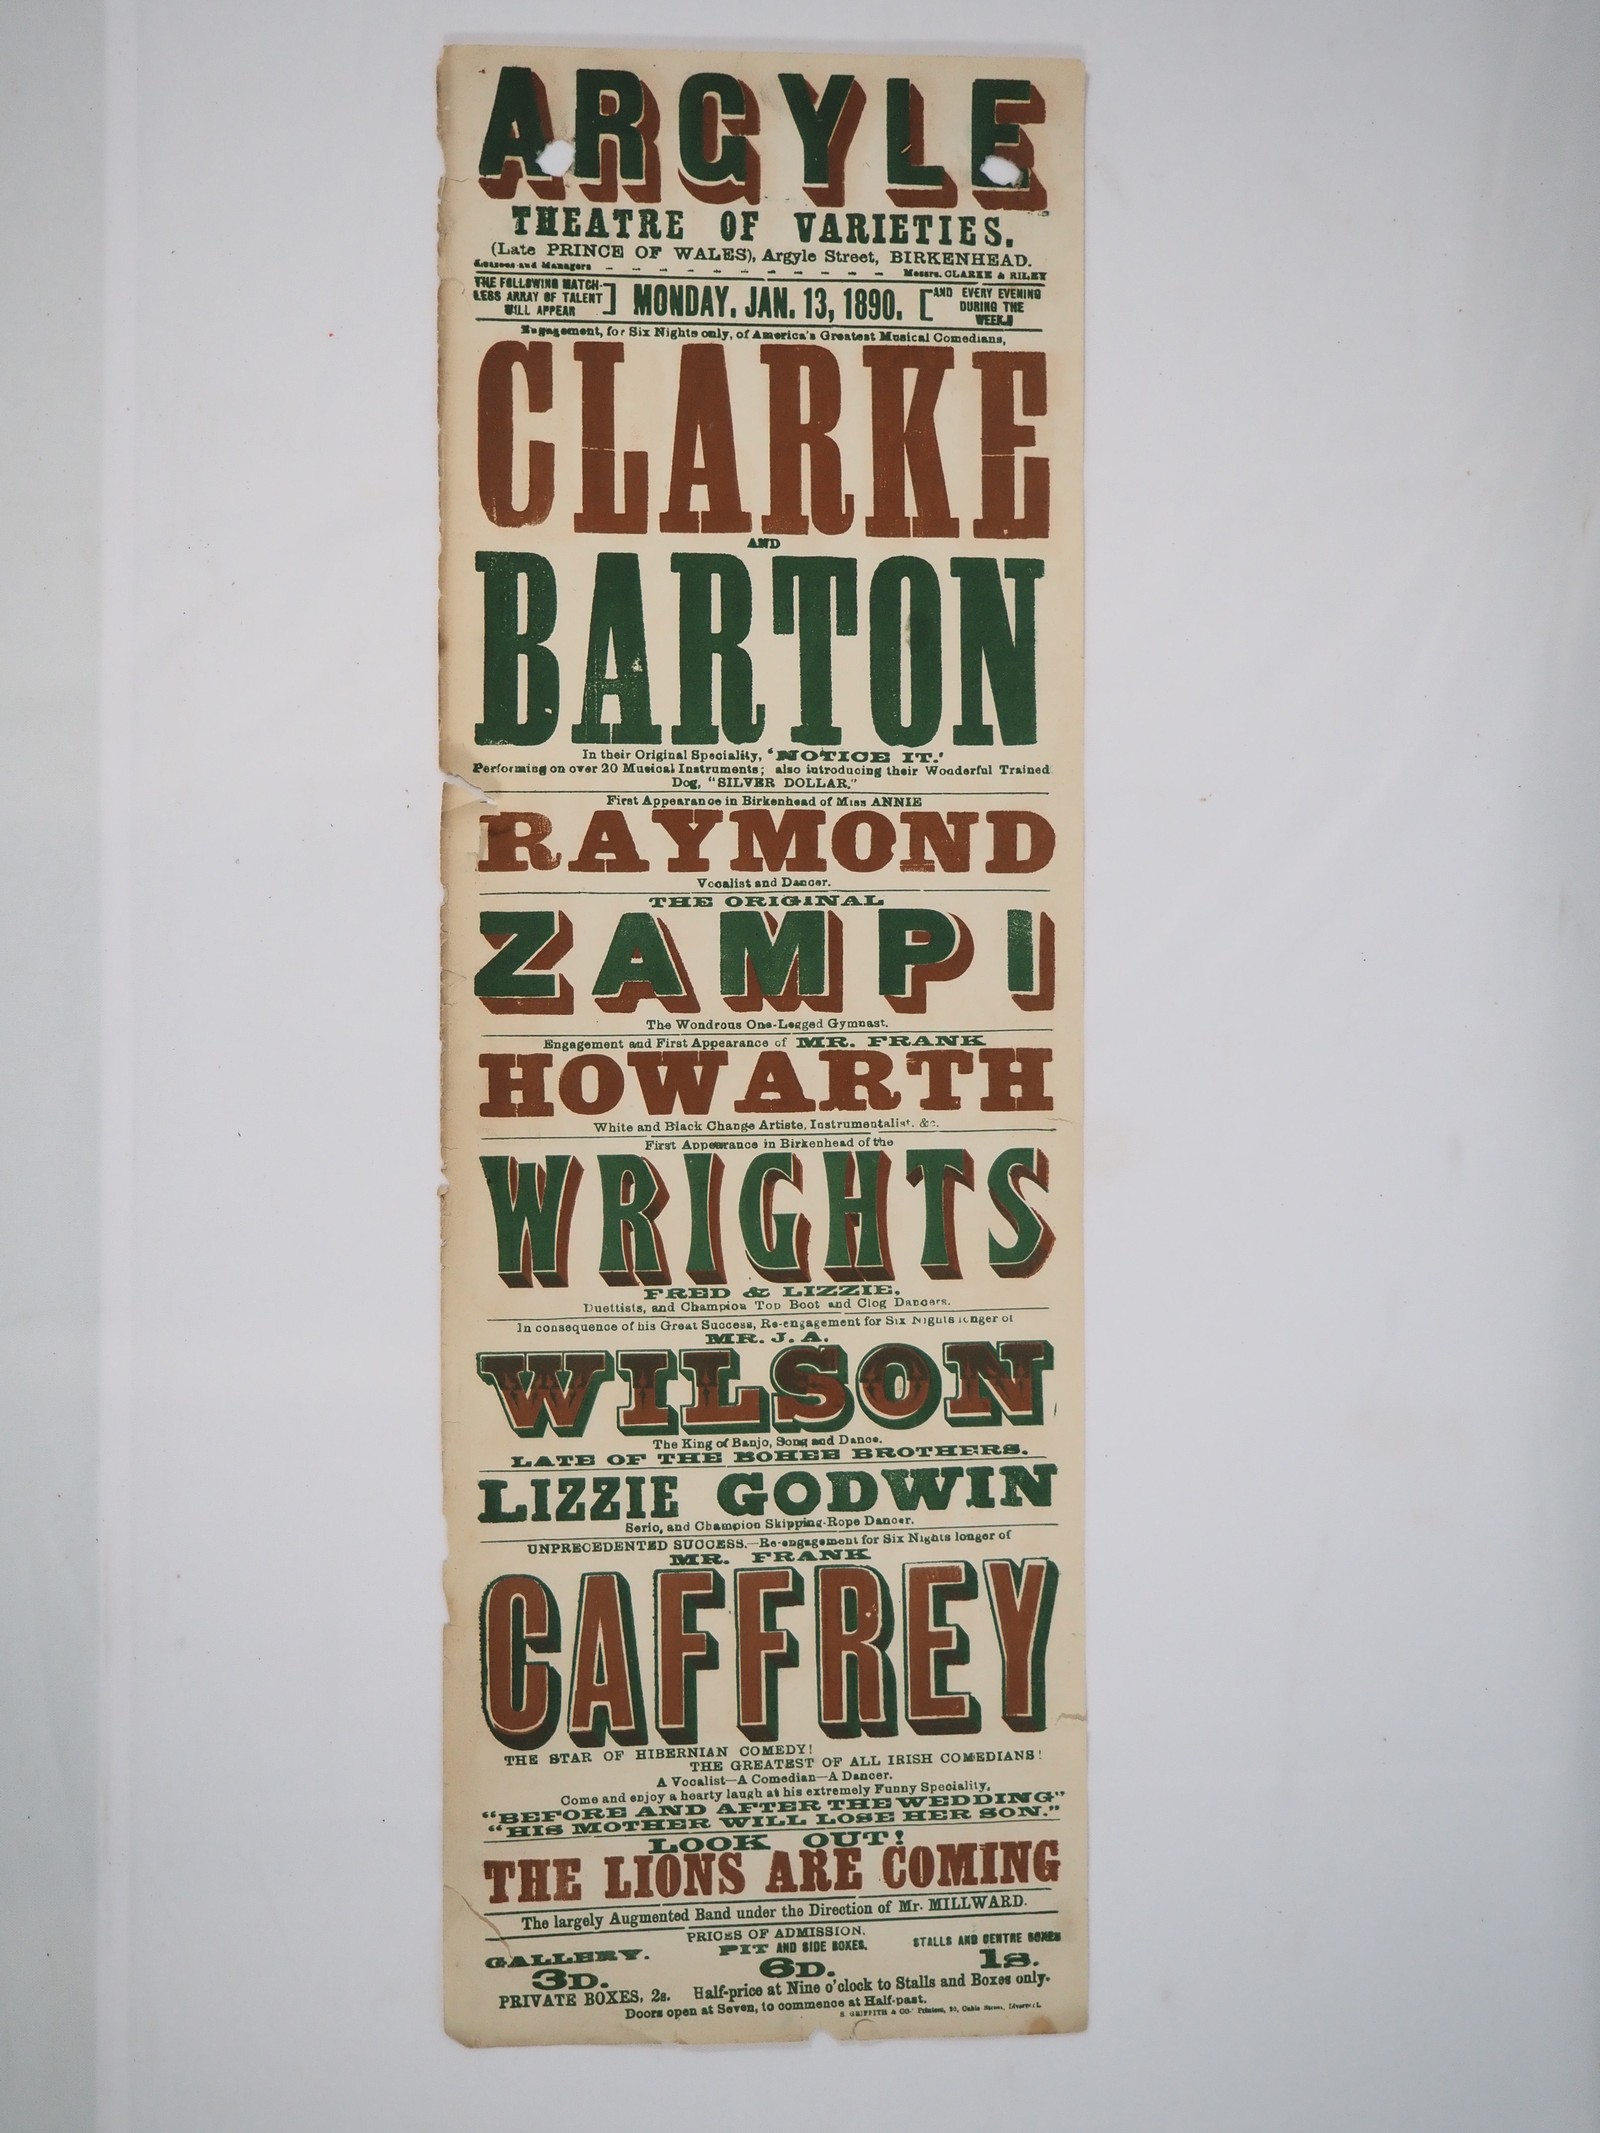 ARGYLE
THEATRE OF VARIETIES.
(Late PRINCE OF WALES), Argyle Street, BIRKENHEAD.
Lessees and Managers - - - - - - - - - - Messrs. CLARKE & RILEY
THE FOLLOWING MATCH-
LESS ARRAY OF TALENT
WILL APPEAR
] MONDAY, JAN. 13, 1890. [
AND EVERY EVENING
DURING THE
WEEK.
Engagement, for Six Nights only, of America's Greatest Musical Comedians,
CLARKE
AND
BARTON
In their Original Speciality, 'NOTICE IT.'
Performing on over 20 Musical Instruments; also introducing their Wonderful Trained
Dog, "SILVER DOLLAR."
First Appearance in Birkenhead of Miss ANNIE
RAYMOND
Vocalist and Dancer.
THE ORIGINAL
ZAMPI
The Wondrous One-Legged Gymnast.
Engagement and First Appearance of MR. FRANK
HOWARTH
White and Black Change Artiste, Instrumentalist, &c.
First Appearance in Birkenhead of the
WRIGHTS
FRED & LIZZIE,
Duettists, and Champion Top Boot and Clog Dancers.
In consequence of his Great Success, Re-engagement for Six Nights longer of
MR. J. A.
WILSON
The King of Banjo, Song and Dance.
LATE OF THE BOHEE BROTHERS.
LIZZIE GODWIN
Serio, and Champion Skipping-Rope Dancer.
UNPRECEDENTED SUCCESS.—Re-engagement for Six Nights longer of
MR. FRANK
CAFFREY
THE STAR OF HIBERNIAN COMEDY!
THE GREATEST OF ALL IRISH COMEDIANS!
A Vocalist—A Comedian—A Dancer.
Come and enjoy a hearty laugh at his extremely Funny Speciality,
"BEFORE AND AFTER THE WEDDING"
"HIS MOTHER WILL LOSE HER SON."
LOOK OUT!
THE LIONS ARE COMING
The largely Augmented Band under the Direction of Mr. MILLWARD.
PRICES OF ADMISSION.
GALLERY. PIT AND SIDE BOXES. STALLS AND CENTRE BOXES
3D. 6D. 1s.
PRIVATE BOXES, 2s. Half-price at Nine o'clock to Stalls and Boxes only.
Doors open at Seven, to commence at Half-past.
S. GRIFFITH & CO. Printers, Cable Street,